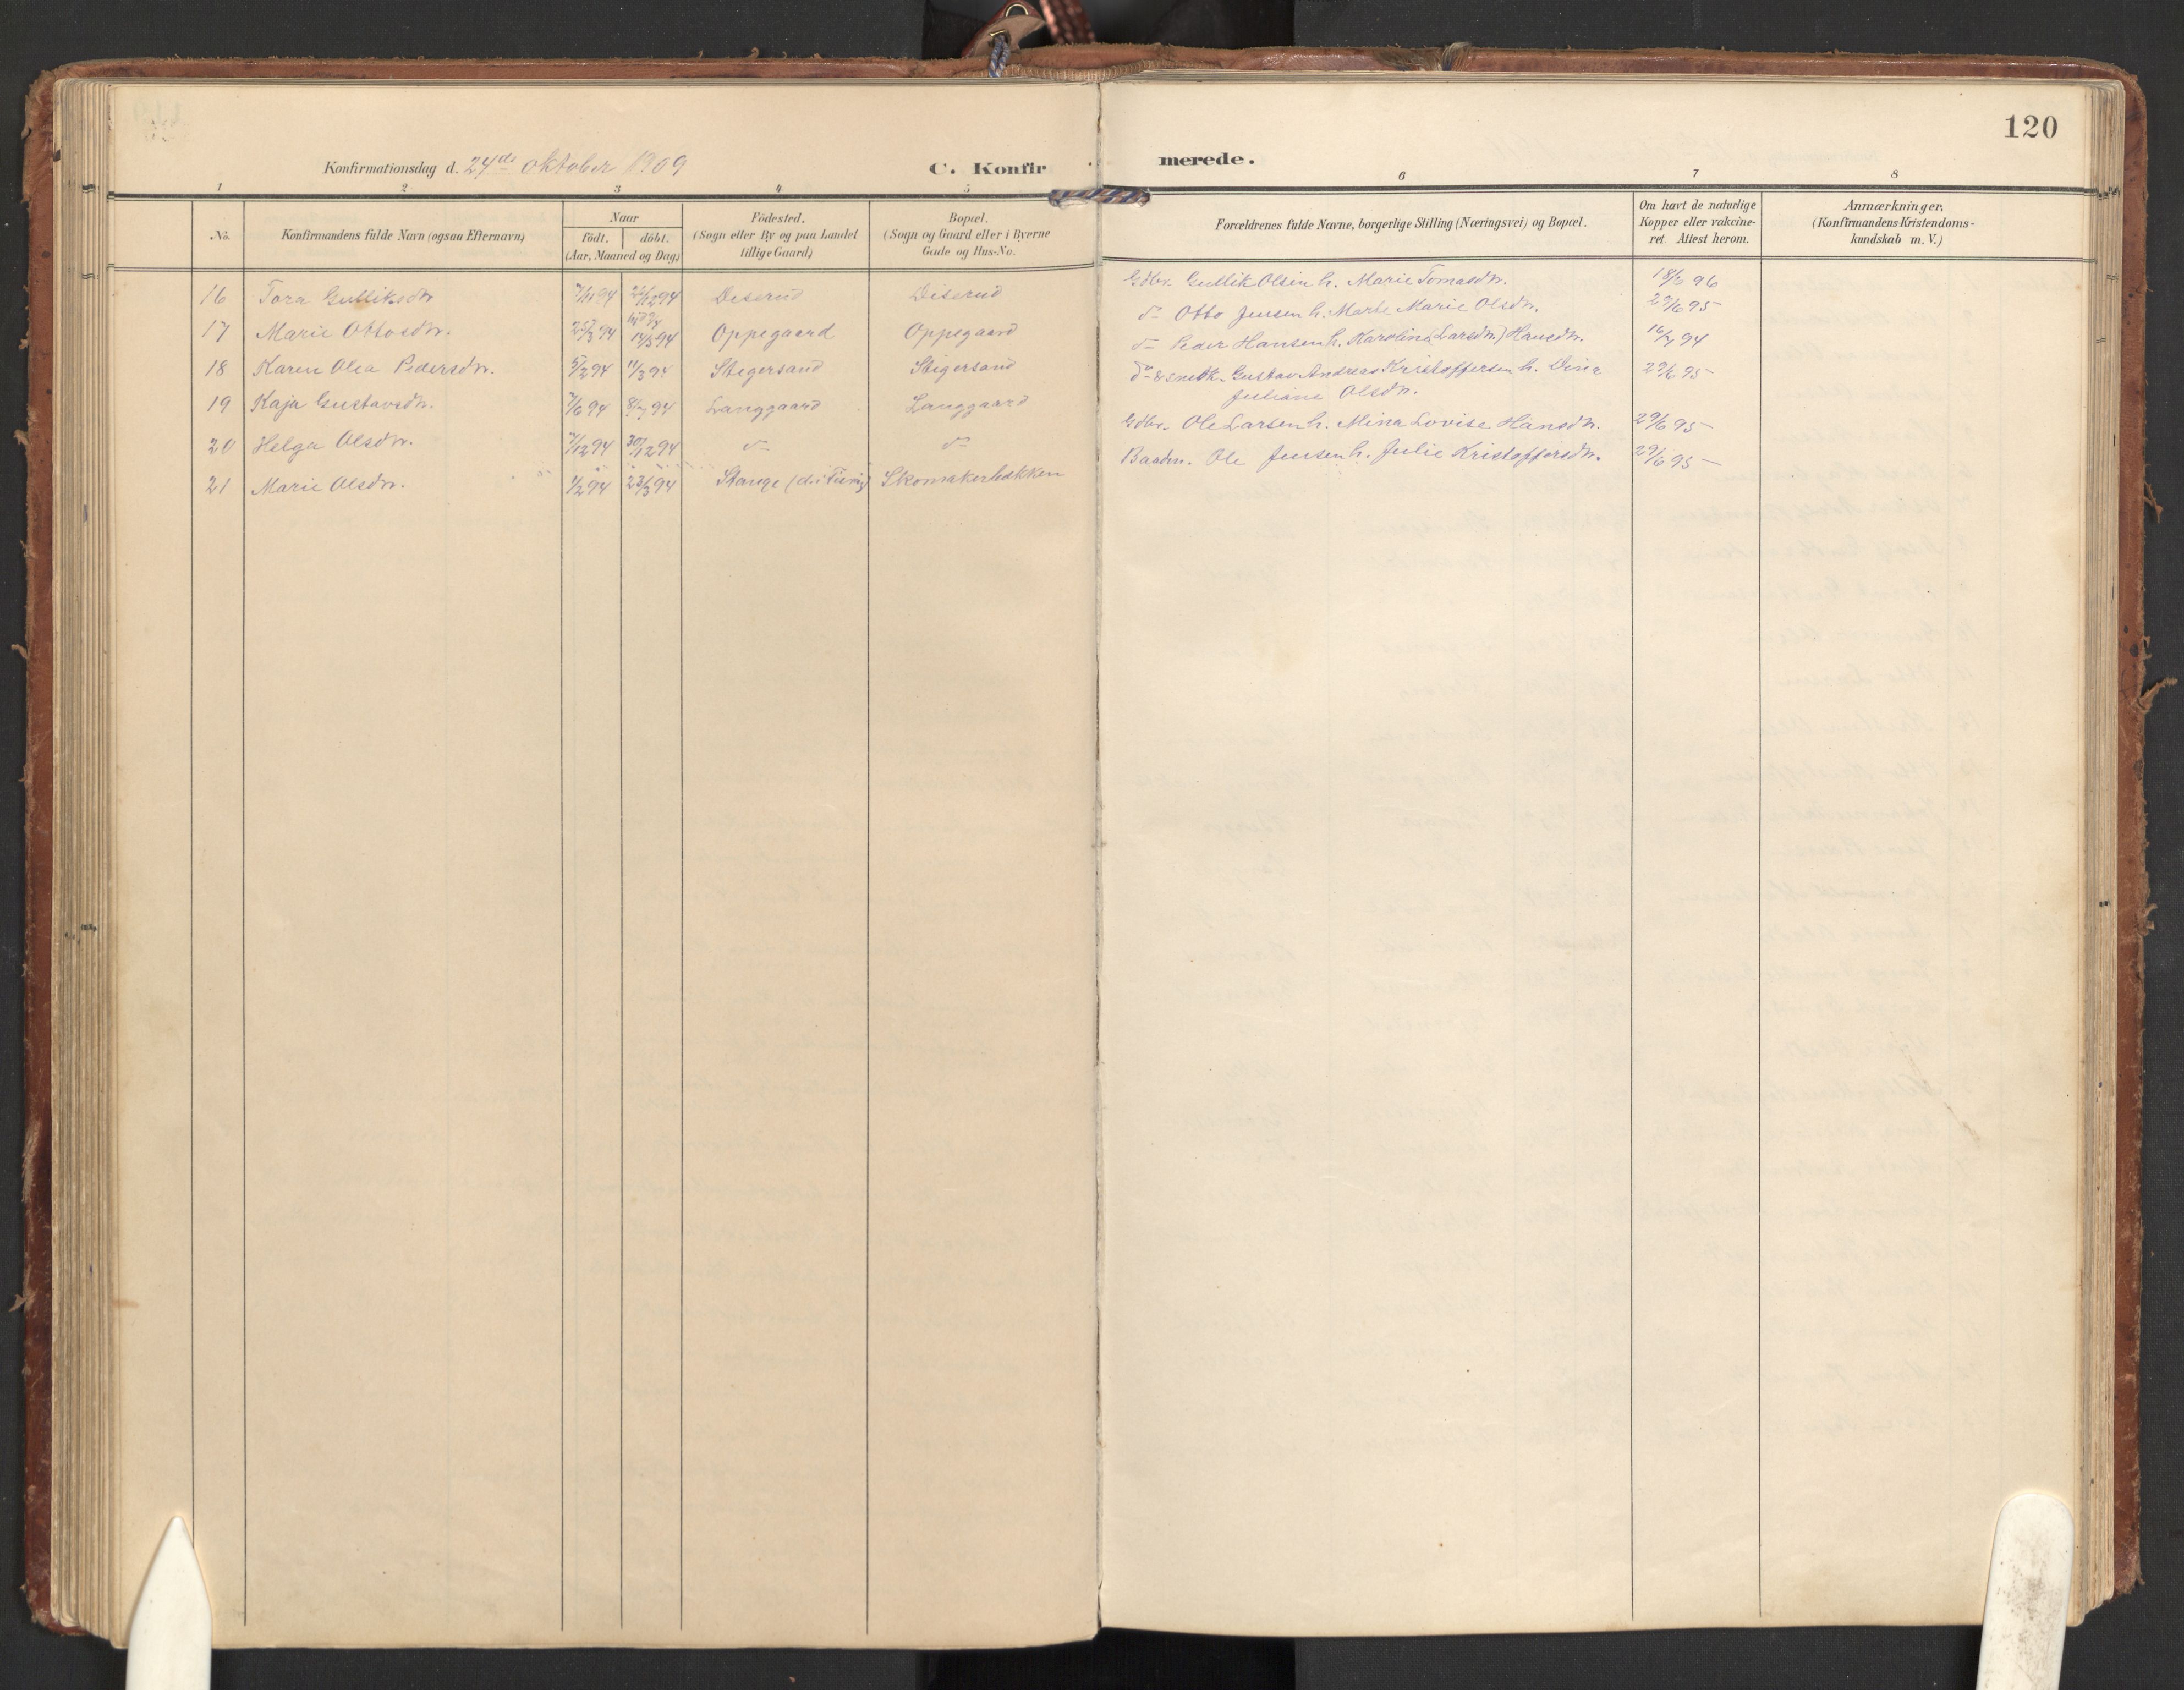 120
Konfirmationsdag d. 24de oktober 1909
C. Konfir merede.
1 2 3 4 5 6 7 8
No.
Konfirmandens fulde Navn (ogsaa Efternavn)
Naar
født. døbt.
(Aar, Maaned og Dag)
Fødested.
(Sogn eller By og paa Landet
tillige Gaard)
Bopæl.
(Sogn og Gaard eller i Byerne
Gade og Hus-No.
Forældrenes fulde Navne, borgerlige Stilling (Næringsvei) og Bopæl.
Om havt de naturlige
Kopper eller vakcine-
ret. Attest herom.
Anmærkninger.
(Konfirmandens Kristendoms-
kundskab m. V.)
16 Tora Gulliksdtr. 94 94 Diserud Diserud Gdbr. Gullik Olsen h. Marie Tomasdtr. 18/3 96
17 Marie Ottosdtr. 25/3 94 14/5 94 Oppegaard Oppegaard do Otto Jensen h. Marte Marie Olsdtr. 29/6 95
18 Karen Olea Pedersdtr. 5/2 94 11/3 94 Stegersand Stigersand do Peder Hansen h. Karoline (Larsdtr.) Hansdtr. 94
19 Kaja Gustavsdtr. 7/6 94 8/7 94 Langgaard Langgaard do & snedk. Gustav Andreas Kristoffersen h. Dina 29/6 95
Juliane Olsdtr.
20 Helga Olsdtr. 7/12 94 30/12 94 do do Gdbr. Ole Larsen h. Mina Lovise Hansdtr. 29/6 95
21 Marie Olsdtr. 1/2 94 23/3 94 Stange Skomakerbakken Baadm. Ole Jensen h. Julie Kristoffersdtr. 29/6 95